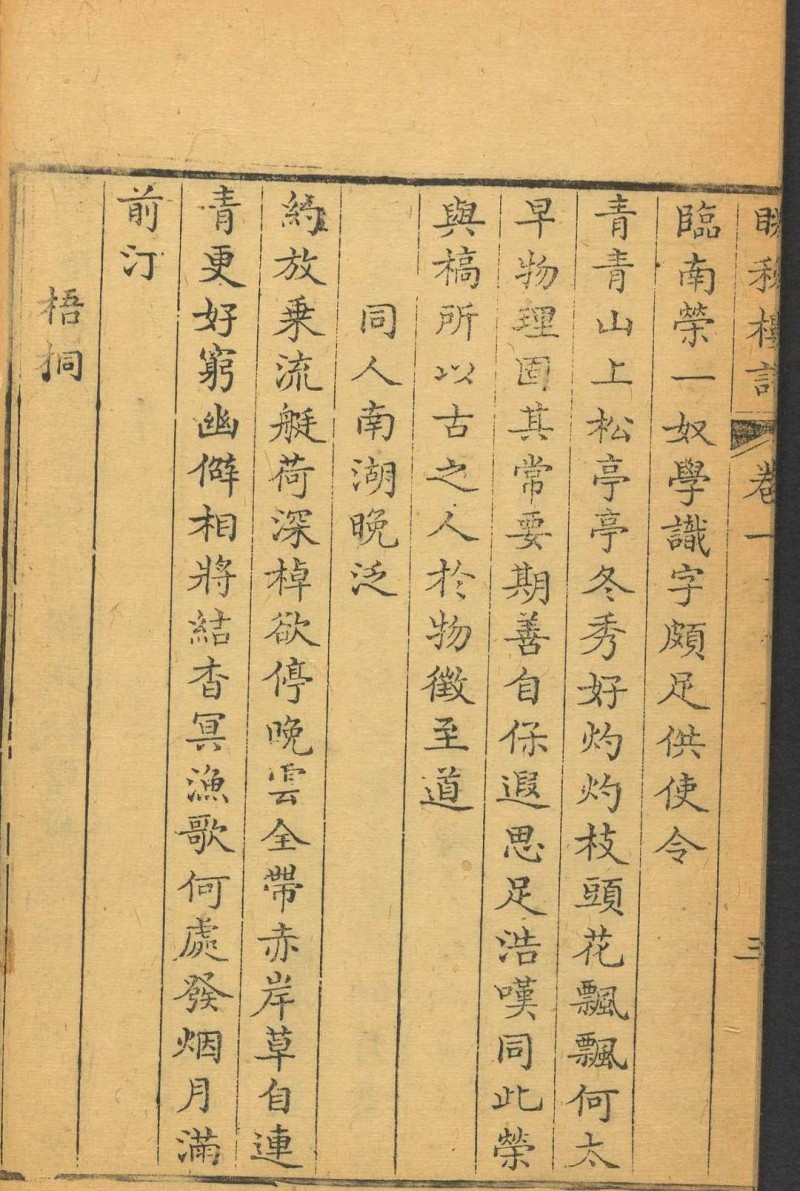 卷一
三
臨南榮一奴學識字頗足供使令
青青山上松亭亭冬秀好灼灼枝頭花飄飄何太
早物理固其常要期善自保遐思足浩嘆同此榮
與槁所以古之人於物徵至道
同人南湖晚泛
約放乗流艇荷深棹欲停晚雲全帶赤岸草自連
青更好窮幽僻相將結杳冥漁歌何處發烟月滿
前汀
梧桐